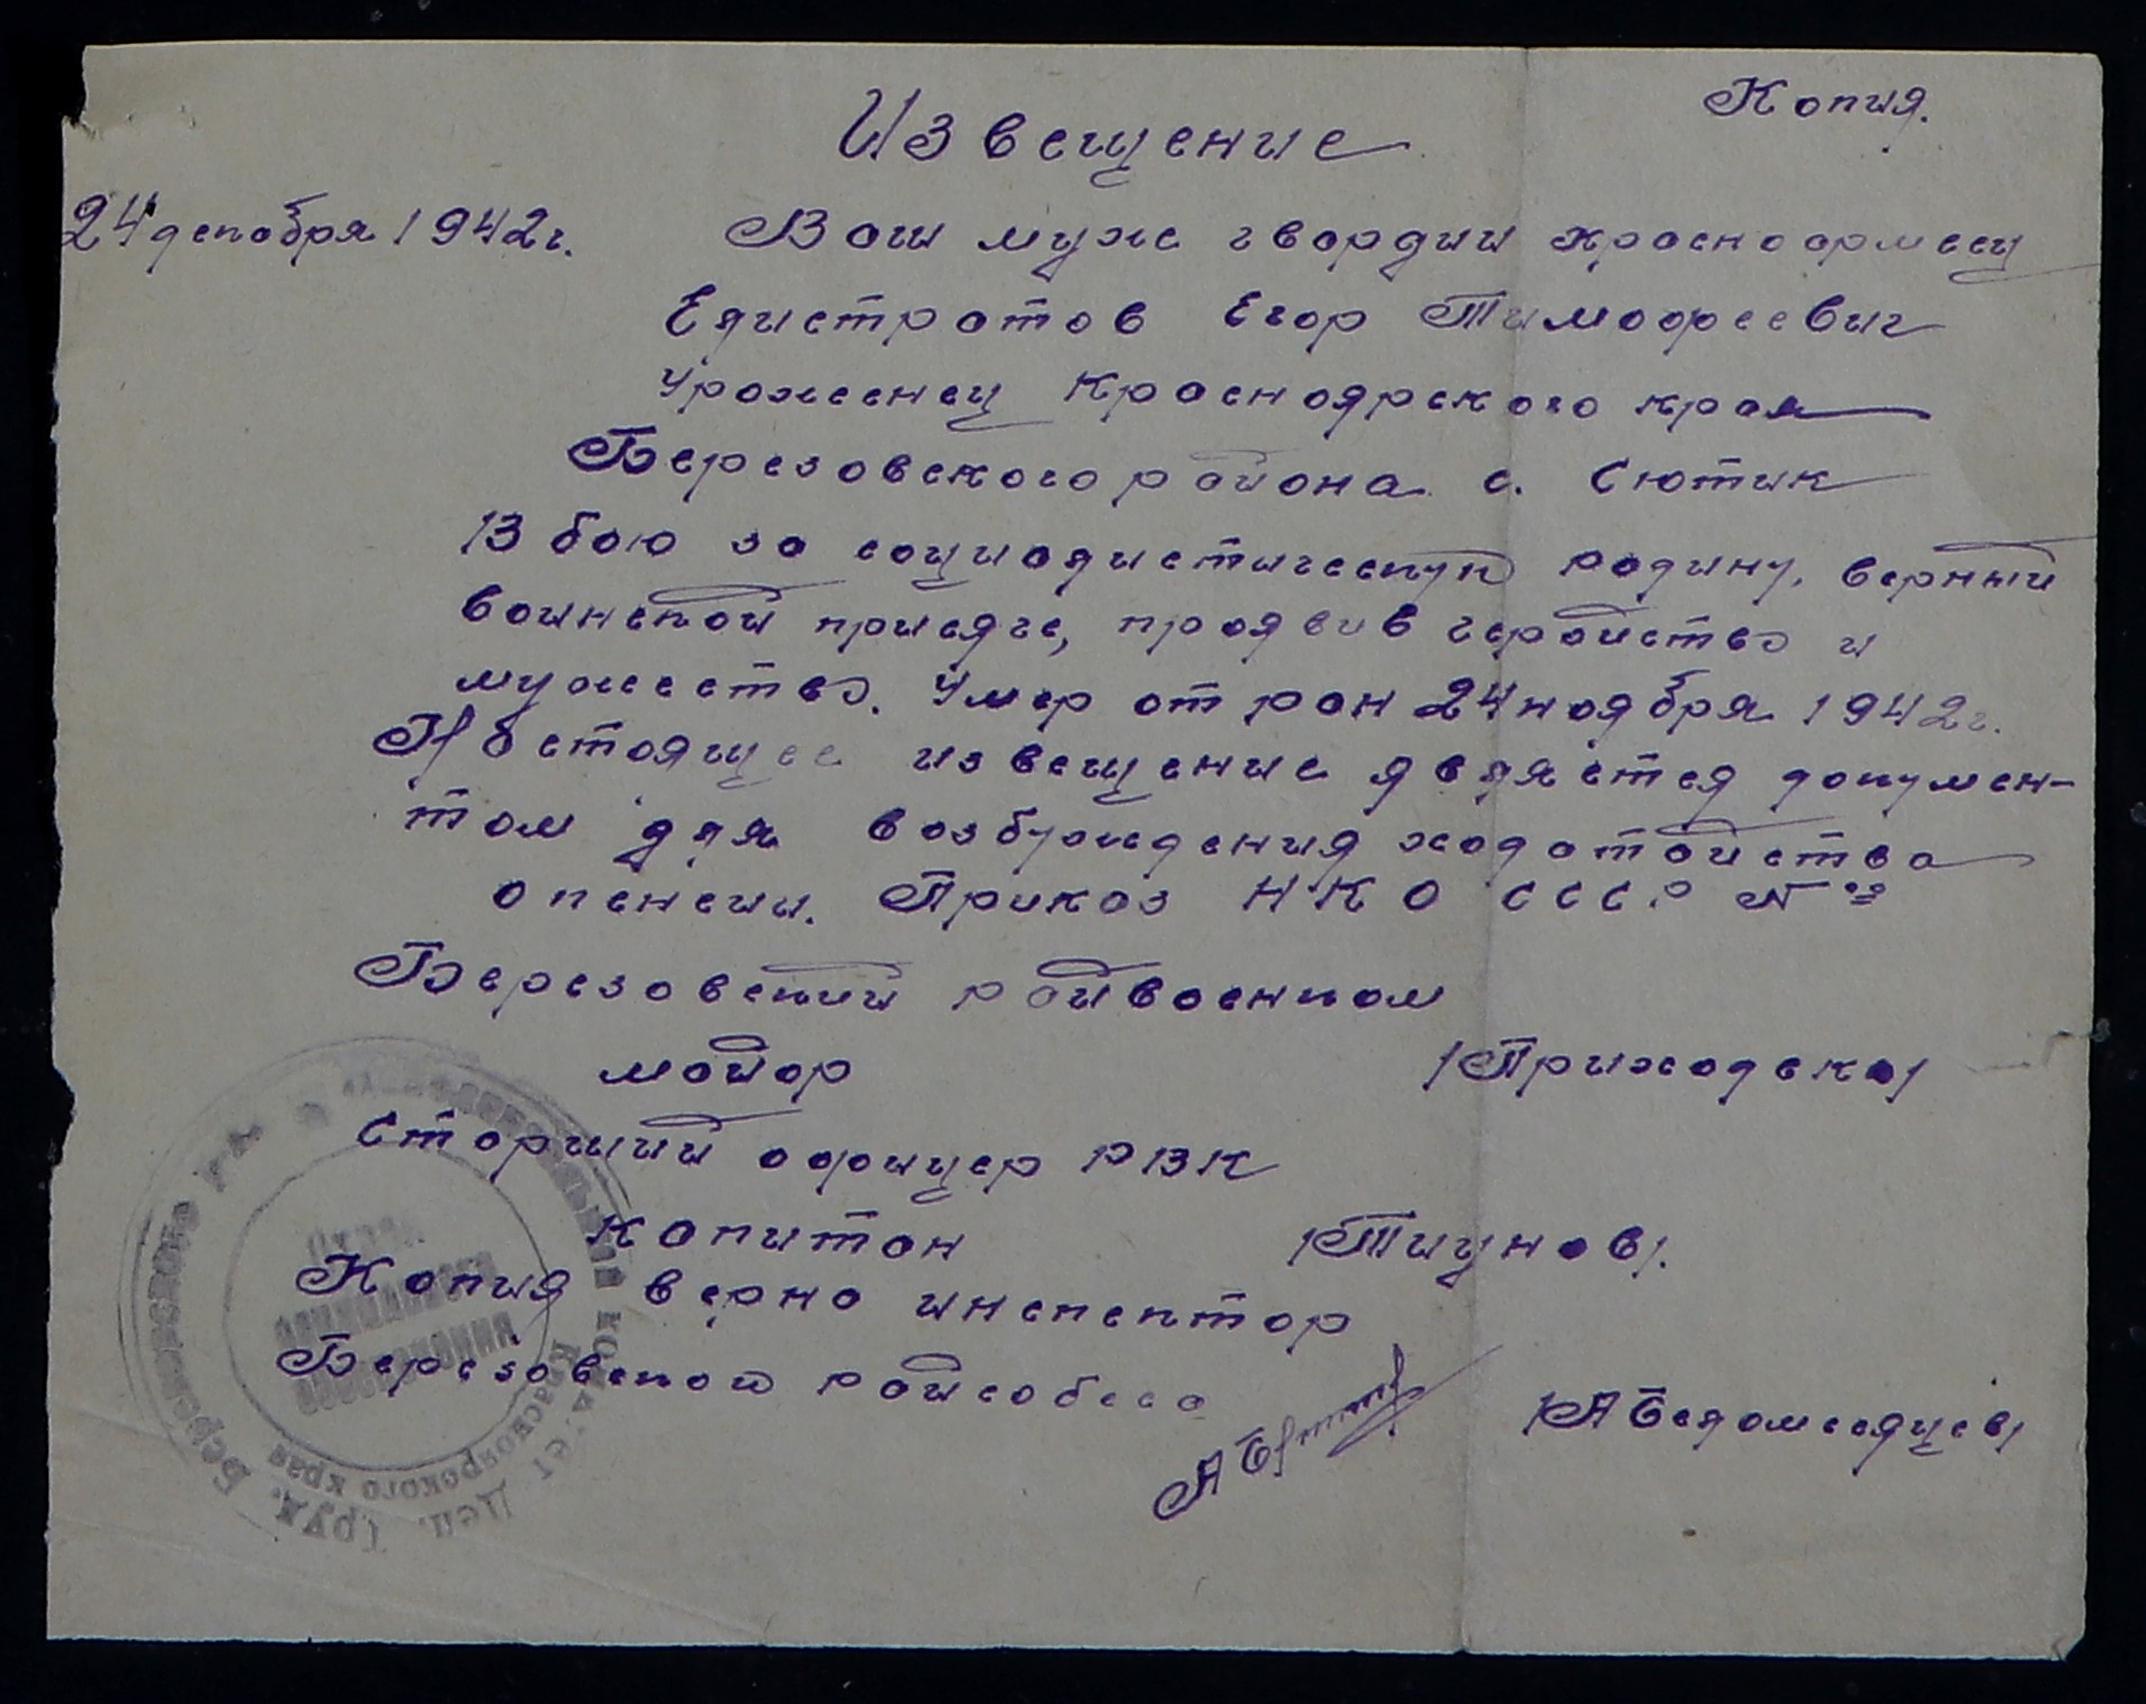 Копия.
Извещение
24 декабря 1942г.
Ваш муж гвардии красноармеец
Елистратов Егор Тимофеевич
Уроженец Красноярского края
Березовского района с. Сютик
В бою за социалистическую родину, верный
воинской присяге, проявив геройство и
мужество. Умер от ран 24 ноября 1942г.
Настоящее извещение является докумен-
том для возбуждения ходатайства
о пенсии. Приказ НКО СССР №
Березовский райвоенком
майор /Приходско/
Старший офицер РВК
Капитан /Тиунов/.
Копия верно инспектор
Березовской райсобеса
/А Беломесяцев/
Березовского
Депутат Труд.
Красноярского края